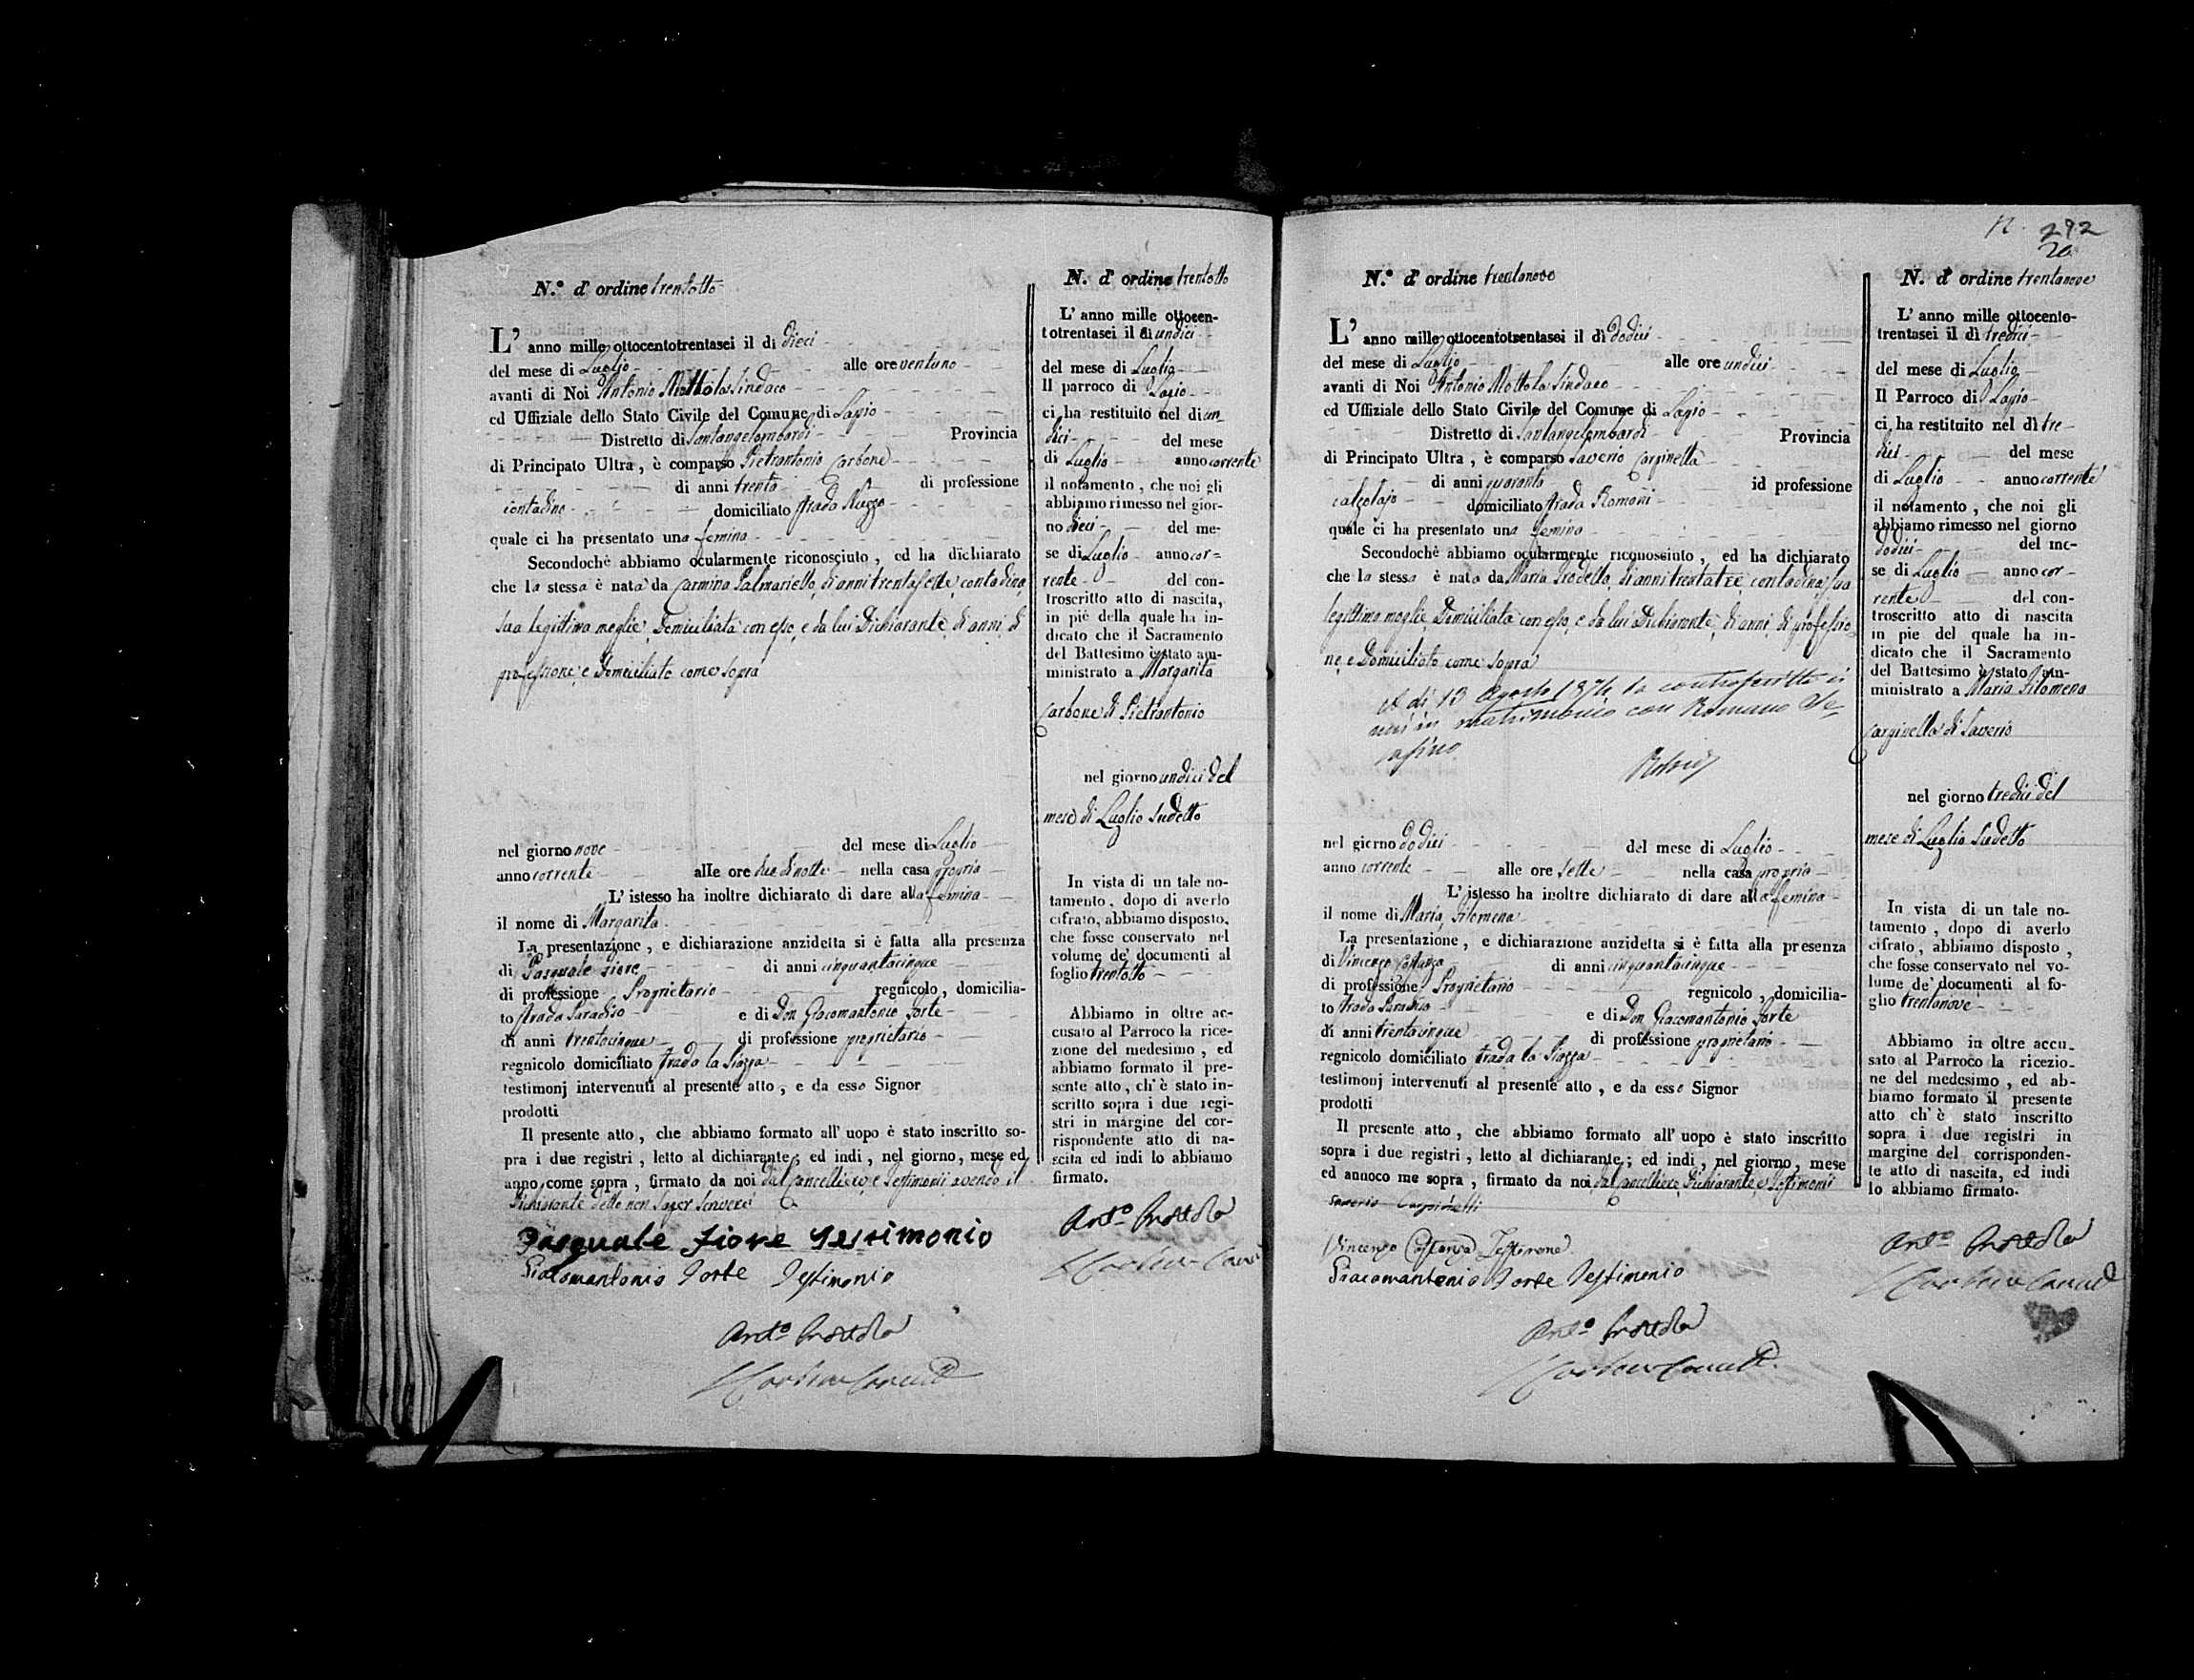 N.º d' ordine trentotto
L' anno mille ottocentotrentasei il di dieci
del mese di Luglio alle ore ventuno
avanti di Noi Antonio Mottola Sindaco
ed Uffiziale dello Stato Civile del Comune di Lapio
Distretto di Santangelombardi Provincia
di Principato Ultra, è comparso Pietrantonio Carbone
di anni trenta di professione
contadino domiciliato strada Nuzzo
quale ci ha presentato una femina
Secondochè abbiamo ocularmente riconosciuto, ed ha dichiarato
che la stessa è nata da Carmina Palmariello, di anni trentasette, contadina,
sua legittima moglie, Domiciliata con esso, e da lui Dichiarante, di anni, di
professione, e Domiciliato come sopra
nel giorno nove del mese di Luglio
anno corrente alle ore due di notte nella casa propria
L' istesso ha inoltre dichiarato di dare alla femina
il nome di Margarita
La presentazione, e dichiarazione anzidetta si è fatta alla presenza
di Pasquale Fiore di anni cinquantacinque
di professione Proprietario regnicolo, domicilia-
to strada Paradiso e di Don Giacomantonio Forte
di anni trentacinque di professione proprietario
regnicolo domiciliato strada la Piazza
testimonj intervenuti al presente atto, e da esso Signor
prodotti
Il presente atto, che abbiamo formato all' uopo è stato inscritto so-
pra i due registri, letto al dichiarante; ed indi, nel giorno, mese ed
anno come sopra, firmato da noi dal Cancelliere, e Testimonii avendo il
Dichiarante detto non saper scrivere
Pasquale Fiore Testimonio
Giacomantonio Forte Testimonio
Ant.º Mottola
N. d' ordine trentotto
L' anno mille ottocen-
totrentasei il di undici
del mese di Luglio
Il parroco di Lapio
ci ha restituito nel di un-
dici del mese
di Luglio anno corrente
il notamento, che noi gli
abbiamo rimesso nel gior-
no dieci del me-
se di Luglio anno cor-
rente del con-
troscritto atto di nascita,
in piè della quale ha in-
dicato che il Sacramento
del Battesimo è stato am-
ministrato a Margarita
Carbone di Pietrantonio
nel giorno undici del
mese di Luglio sudetto
In vista di un tale no-
tamento, dopo di averlo
cifrato, abbiamo disposto,
che fosse conservato nel
volume de' documenti al
foglio trentotto
Abbiamo in oltre ac-
cusato al Parroco la rice-
zione del medesimo, ed
abbiamo formato il pre-
sente atto, ch' è stato in-
scritto sopra i due regi-
stri in margine del cor-
rispondente atto di na-
scita ed indi lo abbiamo
firmato.
Ant.º Mottola
292
20
N.º d' ordine trentanove
L' anno mille ottocentotrentasei il di dodici
del mese di Luglio alle ore undici
avanti di Noi Antonio Mottola Sindaco
ed Uffiziale dello Stato Civile del Comune di Lapio
Distretto di Santangelombardi Provincia
di Principato Ultra, è comparso Saverio Carpinella
di anni quaranta id professione
calzolajo domiciliato strada Romani
quale ci ha presentato una femina
Secondochè abbiamo ocularmente riconosciuto, ed ha dichiarato
che la stessa è nata da Maria di anni trentatre, contadina, sua
legittima moglie, Domiciliata con esso, e da lui Dichiarante, di anni, di professio-
ne, e Domiciliato come sopra
A dì 13 Agosto 1874 la controscritta si
unì in matrimonio con Romano Se-
rafino
nel giorno dodici del mese di Luglio
anno corrente alle ore sette nella casa propria
L' istesso ha inoltre dichiarato di dare alla femina
il nome di Maria Filomena
La presentazione, e dichiarazione anzidetta si è fatta alla presenza
di Vincenzo Costanza di anni cinquantacinque
di professione Proprietario regnicolo, domicilia-
to strada Paradiso e di Don Giacomantonio Forte
di anni trentacinque di professione proprietario
regnicolo domiciliato strada la Piazza
testimonj intervenuti al presente atto, e da esso Signor
prodotti
Il presente atto, che abbiamo formato all' uopo è stato inscritto
sopra i due registri, letto al dichiarante; ed indi, nel giorno, mese
ed annoco me sopra, firmato da noi, dal Cancelliere, Dichiarante, e Testimonii
Saverio Carpinelli
Vincenzo Costanza Testimone
Giacomantonio Forte Testimonio
Ant.º Mottola
N. d' ordine trentanove
L' anno mille ottocento-
trentasei il dì tredici
del mese di Luglio
Il Parroco di Lapio
ci ha restituito nel dì tre-
dici del mese
di Luglio anno corrente
il notamento, che noi gli
abbiamo rimesso nel giorno
dodici del me-
se di Luglio anno cor-
rente del con-
troscritto atto di nascita
in pie del quale ha in-
dicato che il Sacramento
del Battesimo è stato am-
ministrato a Maria Filomena
Carpinella di Saverio
nel giorno tredici del
mese di Luglio Sudetto
In vista di un tale no-
tamento, dopo di averlo
cifrato, abbiamo disposto,
che fosse conservato nel vo-
lume de' documenti al fo-
glio trentanove
Abbiamo in oltre accu-
sato al Parroco la ricezio-
ne del medesimo, ed ab-
biamo formato il presente
atto ch' è stato inscritto
sopra i due registri in
margine del corrisponden-
te atto di nascita, ed indi
lo abbiamo firmato.
Ant.º Mottola